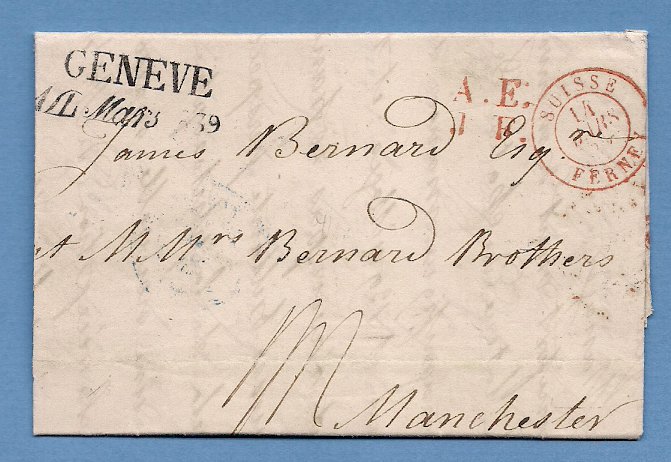 GENEVE
Mars
A. E.
SUISSE
14
FERNEY
James Bernard Esqr
at M Mrs Bernard Brothers
Manchester